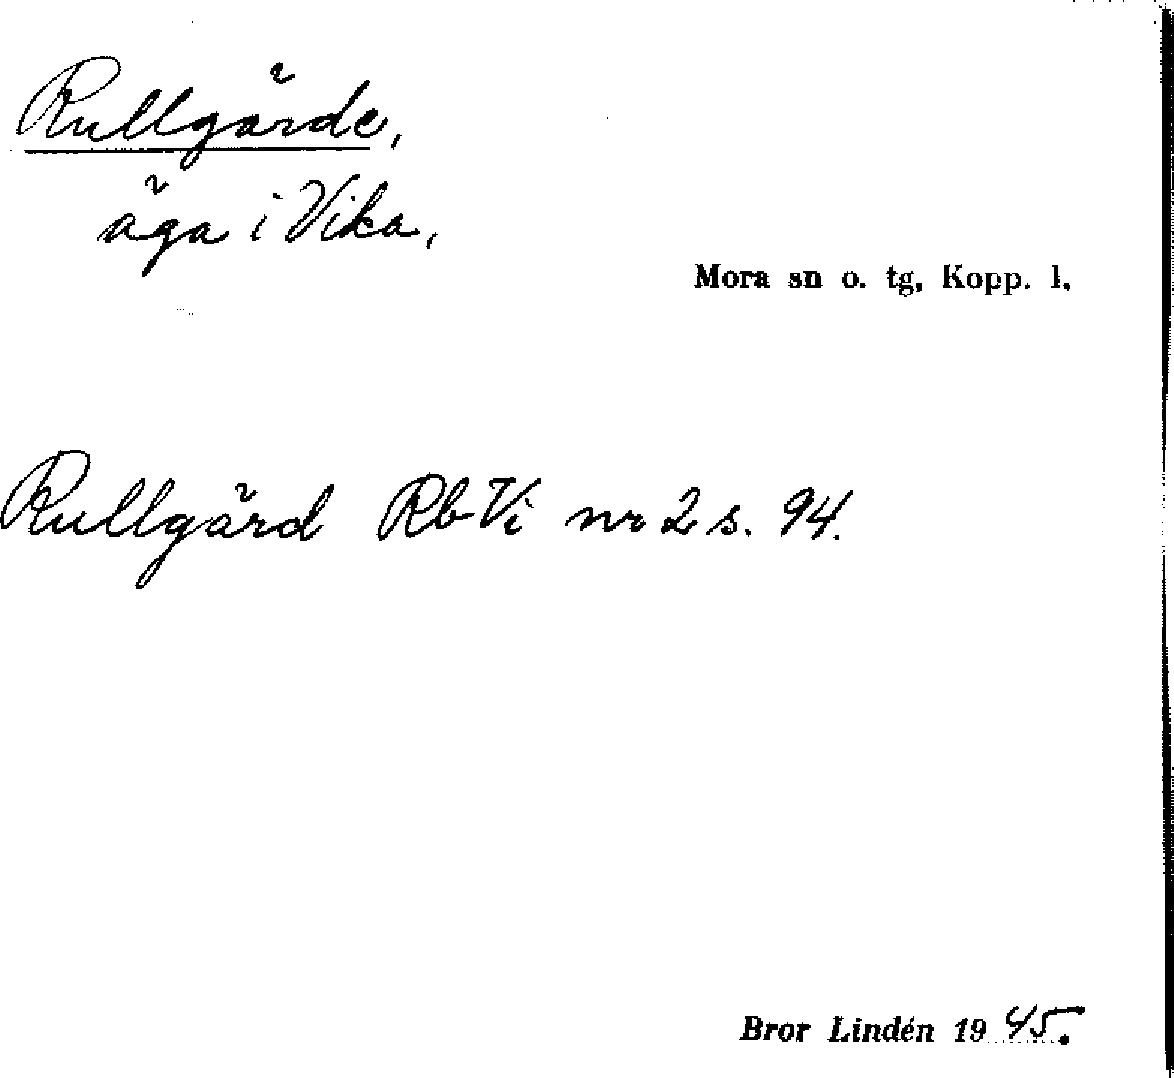 Rullgärde,
äga i Vika,
Mora sn o. tg, Kopp. l.
Rullgärd RbVi nr 2 s. 94.
Bror Lindén 1945.